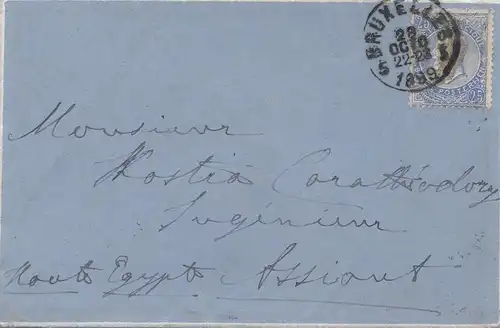 BRUXELLES 5
28
OCTO
22-23
1899
5
Monsieur
Kostia Carathéodory
Ingénieur
Haute Egypte Assiout